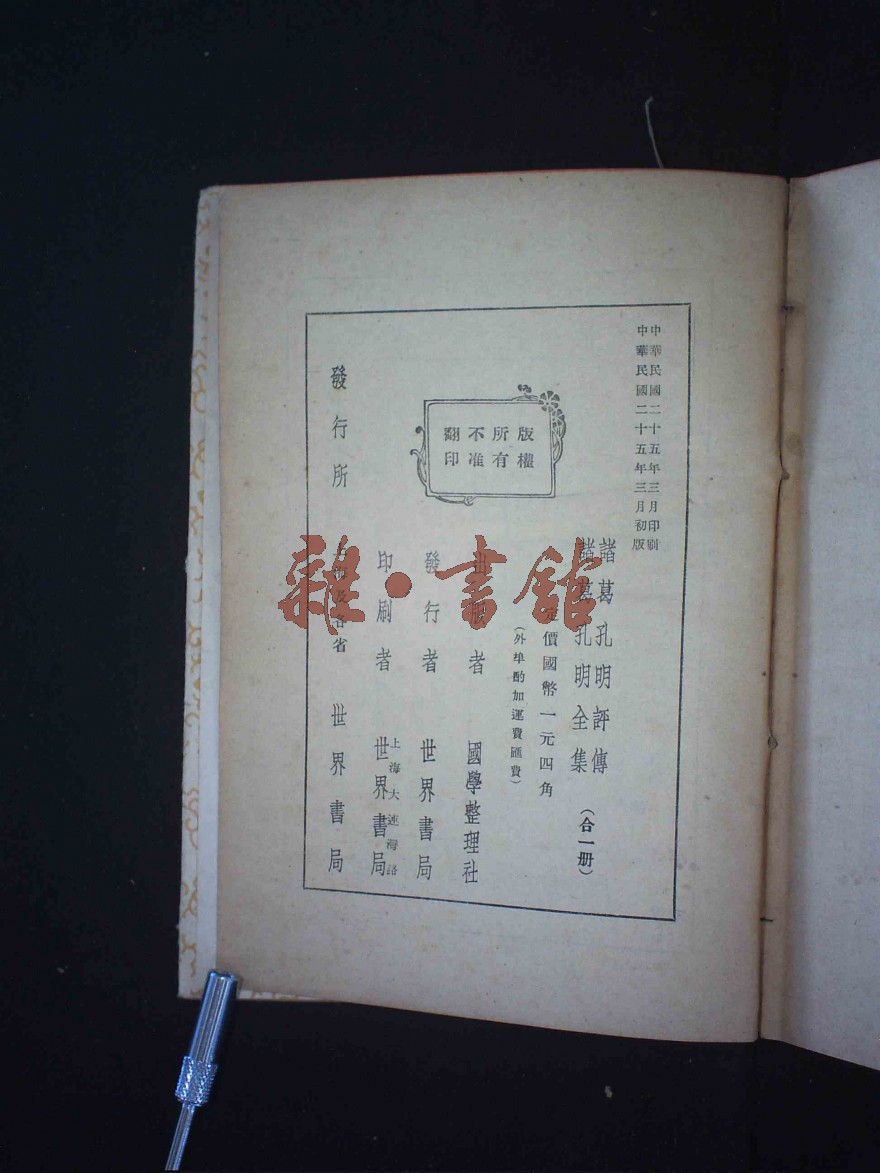 中華民國二十五年三月印刷
中華民國二十五年三月初版
諸葛孔明評傳
諸葛孔明全集
（合一册）
定價國幣一元四角
（外埠酌加運費匯費）
版權
所有
不准
翻印
出版者 國學整理社
發行者 世界書局
印刷者 上海大連灣路 世界書局
發行所 上海及各省 世界書局
雜·書館